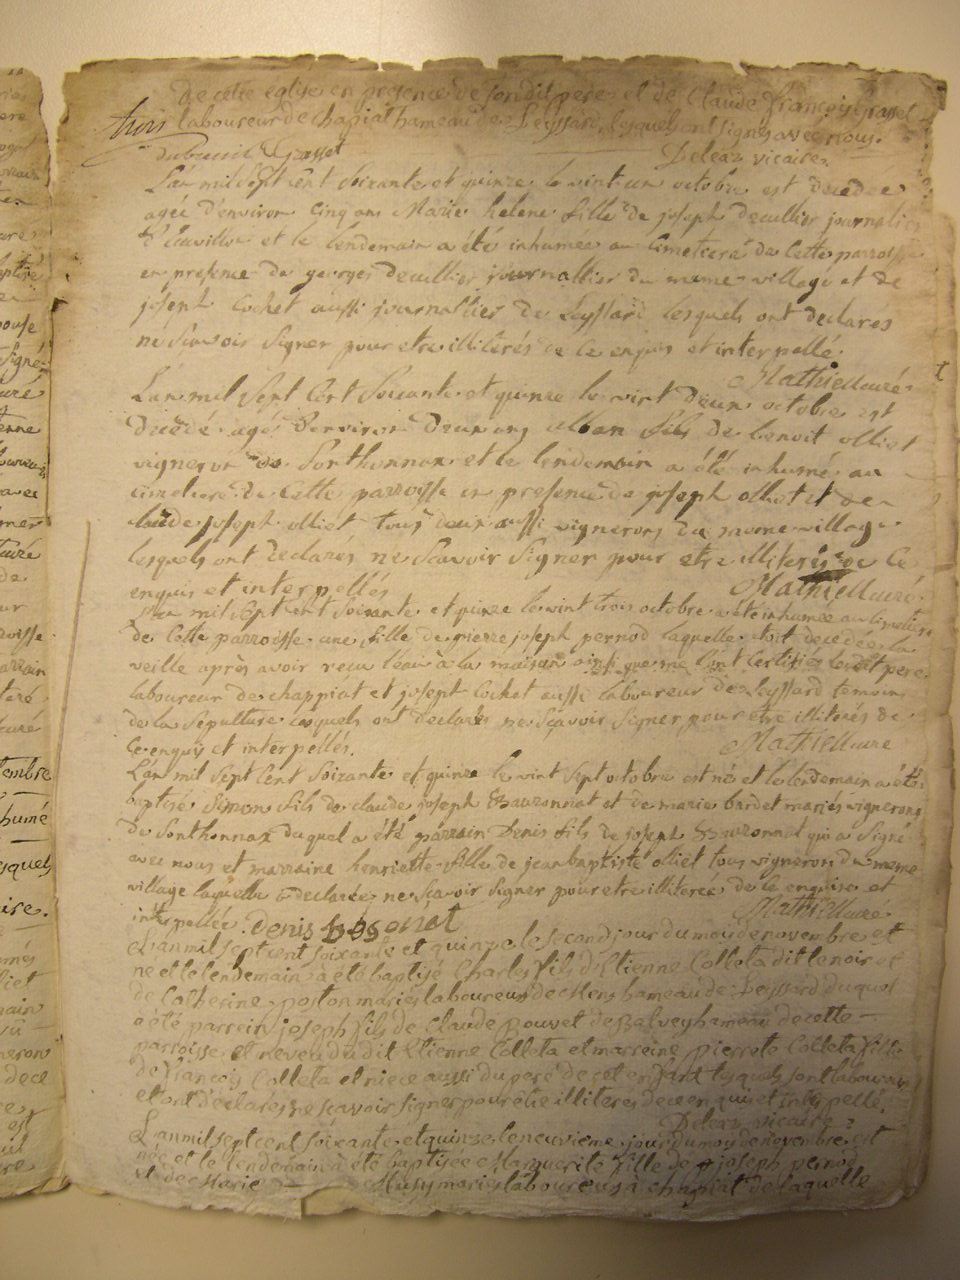 De cette eglise en presence de son dit pere et de Claude François Grasset
trois laboureur de chapiat hameau de Leyssard, lesquels ont signés avec nous.
dubreuil Grasset Deleaz vicaire
L'an mil sept cent soixante et quinze le vint un octobre est decedée
agée d'environ cinq ans Marie helene fille de joseph decullier journallier
et le lendemain a été inhumée au cimetiere de cette parroisse
en presence de georges decullier journallier du meme village et de
joseph Cochet aussi journallier de Leyssard lesquels ont declares
ne scavoir signer pour etre illiterés de ce enquis et interpellé.
Mathieu curé
L'an mil sept cent soixante et quinze le vint deux octobre est
decedé agé d'environ deux ans alban fils de benoit olliet
vigneron de Sonthonnax et le lendemain a été inhumé au
cimetiere de cette parroisse en presence de joseph olliet et de
claude joseph olliet tous deux aussi vignerons du meme village
lesquels ont declarés ne scavoir signer pour etre illiterés de ce
enquis et interpellés Mathieu curé.
L'an mil sept cent soixante et quinze le vint trois octobre a eté inhumée au cimetiere
de cette parroisse une fille de pierre joseph pernod laquelle etoit decedée la
veille après avoir recu l'eau à la maison ainsi que me l'ont certifiés ledit pere
laboureur de chappiat et joseph Cochet aussi laboureur de Leyssard temoins
de la sepulture lesquels ont declarés ne scavoir signer pour etre illiterés de
ce enquis et interpellés. Mathieu curé
L'an mil sept cent soixante et quinze le vint sept octobre est né et le lendemain a été
baptisé Simon fils de claude joseph Bauzonnat et de marie bardet mariés vignerons
de Sonthonnax duquel a été parrain Denis fils de joseph Bauzonnat qui a signé
avec nous et marraine henriette fille de jean baptiste olliet tous vignerons du meme
village laquelle a declarée ne scavoir signer pour etre illiterée de ce enquise et
interpellée. denis Mathieu curé
L'an mil sept cent soixante et quinze le second jour du mois de novembre est
né et le lendemain à été baptisé Charles fils d'Etienne Colleta dit lenoir et
de Catherine poston mariés laboureurs de hameau de Leyssard duquel
à été parrein joseph fils de Claude Bouvet de Balvey hameau de cette
parroisse et neveu du dit Etienne Colleta et marreine pierrete Colleta fille
de François Colleta et niece aussi du pere de cet enfant lesquels sont laboureurs
et ont declares ne scavoir signer pour être illiteres de ce enquis et interpellé.
Deleaz vicaire
L'an mil sept cent soixante et quinze le neuvieme jour du mois de novembre est
née et le lendemain à été baptisée Marguerite fille de joseph pernod
et de Marie Musy mariés laboureurs à chapiat de laquelle